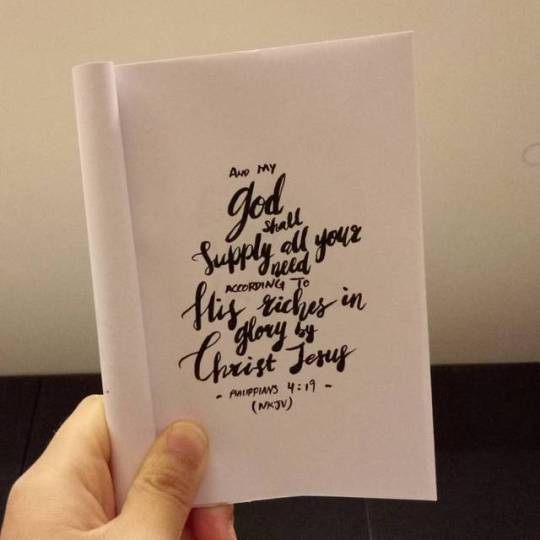 AND MY
God
shall
Supply all your
need
ACCORDING TO
His riches in
glory by
Christ Jesus
- PHILIPPIANS 4:19 -
(NKJV)